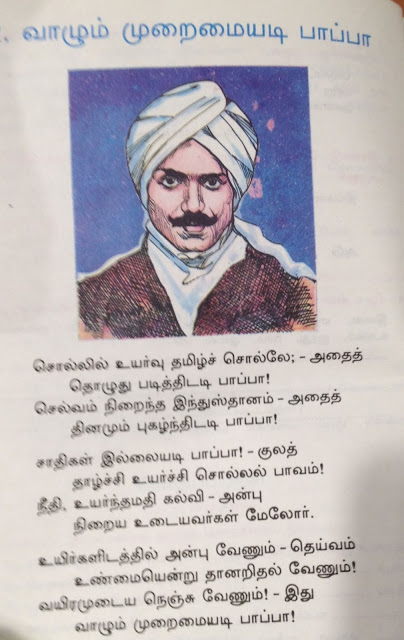 . வாழும் முறைமையடி பாப்பா
சொல்லில் உயர்வு தமிழ்ச் சொல்லே; – அதைத்
தொழுது படித்திடடி பாப்பா!
செல்வம் நிறைந்த இந்துஸ்தானம் – அதைத்
தினமும் புகழ்ந்திடடி பாப்பா!
சாதிகள் இல்லையடி பாப்பா! – குலத்
தாழ்ச்சி உயர்ச்சி சொல்லல் பாவம்!
நீதி, உயர்ந்தமதி கல்வி – அன்பு
நிறைய உடையவர்கள் மேலோர்.
உயிர்களிடத்தில் அன்பு வேணும் – தெய்வம்
உண்மையென்று தானறிதல் வேணும்!
வயிரமுடைய நெஞ்சு வேணும்! – இது
வாழும் முறைமையடி பாப்பா!